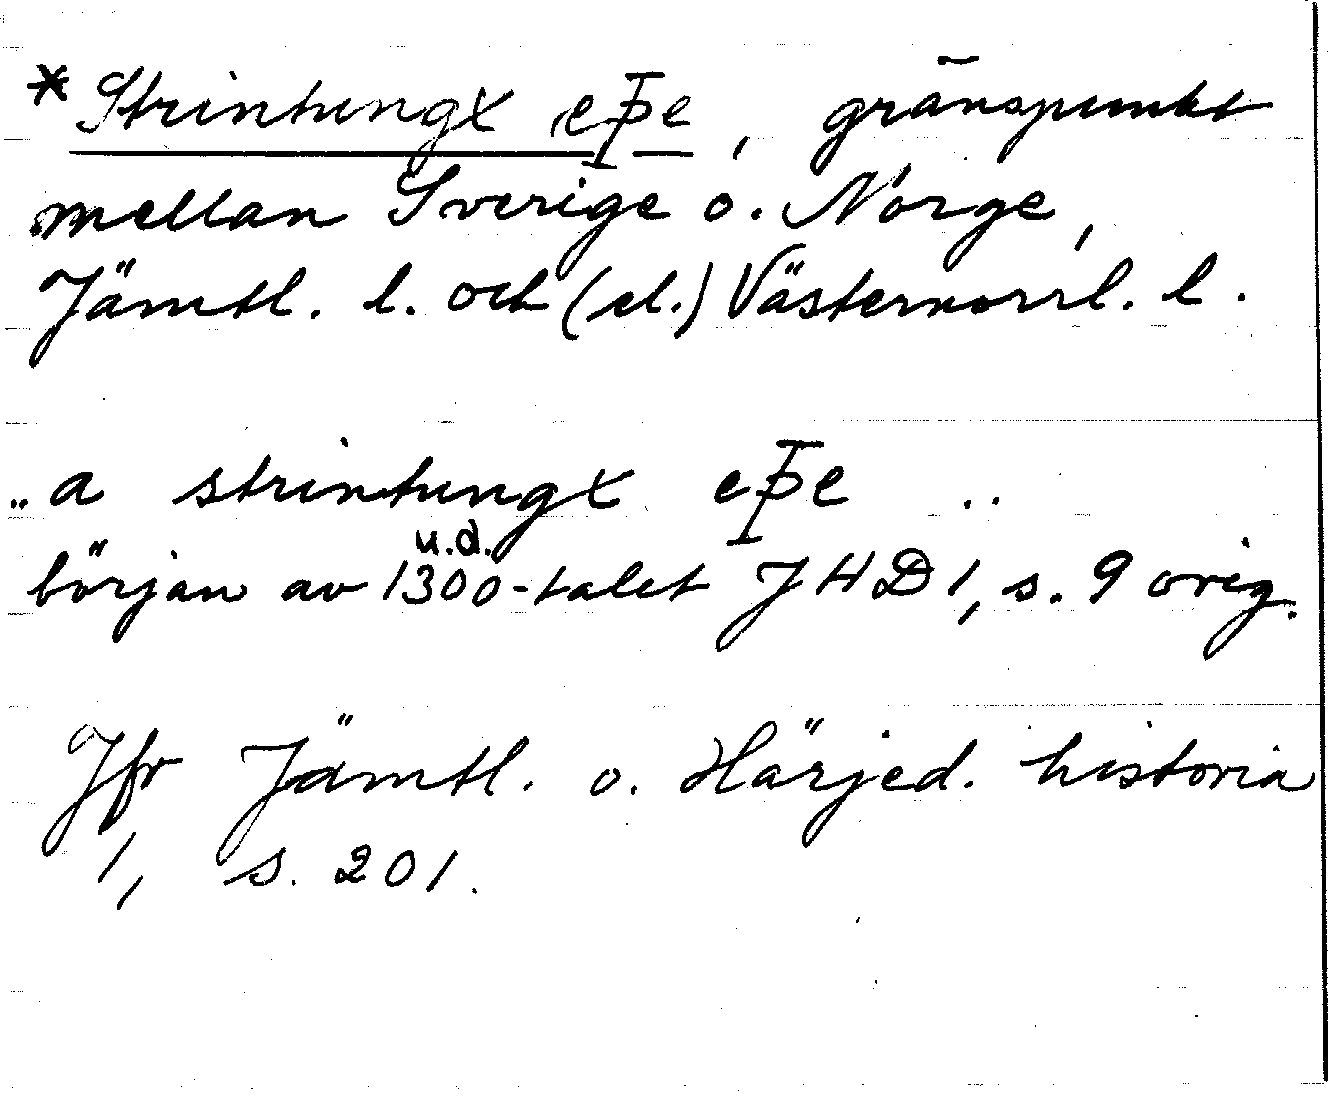 * Strintungx eþe, gränspunkt
mellan Sverige o. Norge,
Jämtl. l. och (el.) Västernorrl. l.
"a strintungx eþe ..
u.d.
början av 1300-talet JHD 1, s. 9 orig.
Jfr Jämtl. o. Härjed. historia
1, s. 201.